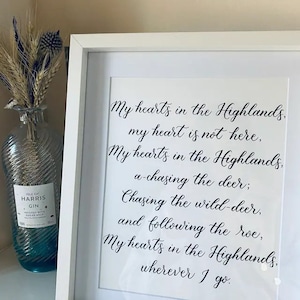 My hearts in the Highlands,
my heart is not here,
My hearts in the Highlands,
a-chasing the deer;
Chasing the wild-deer,
and following the roe,
My hearts in the Highlands,
wherever I go.
HARRIS
GIN